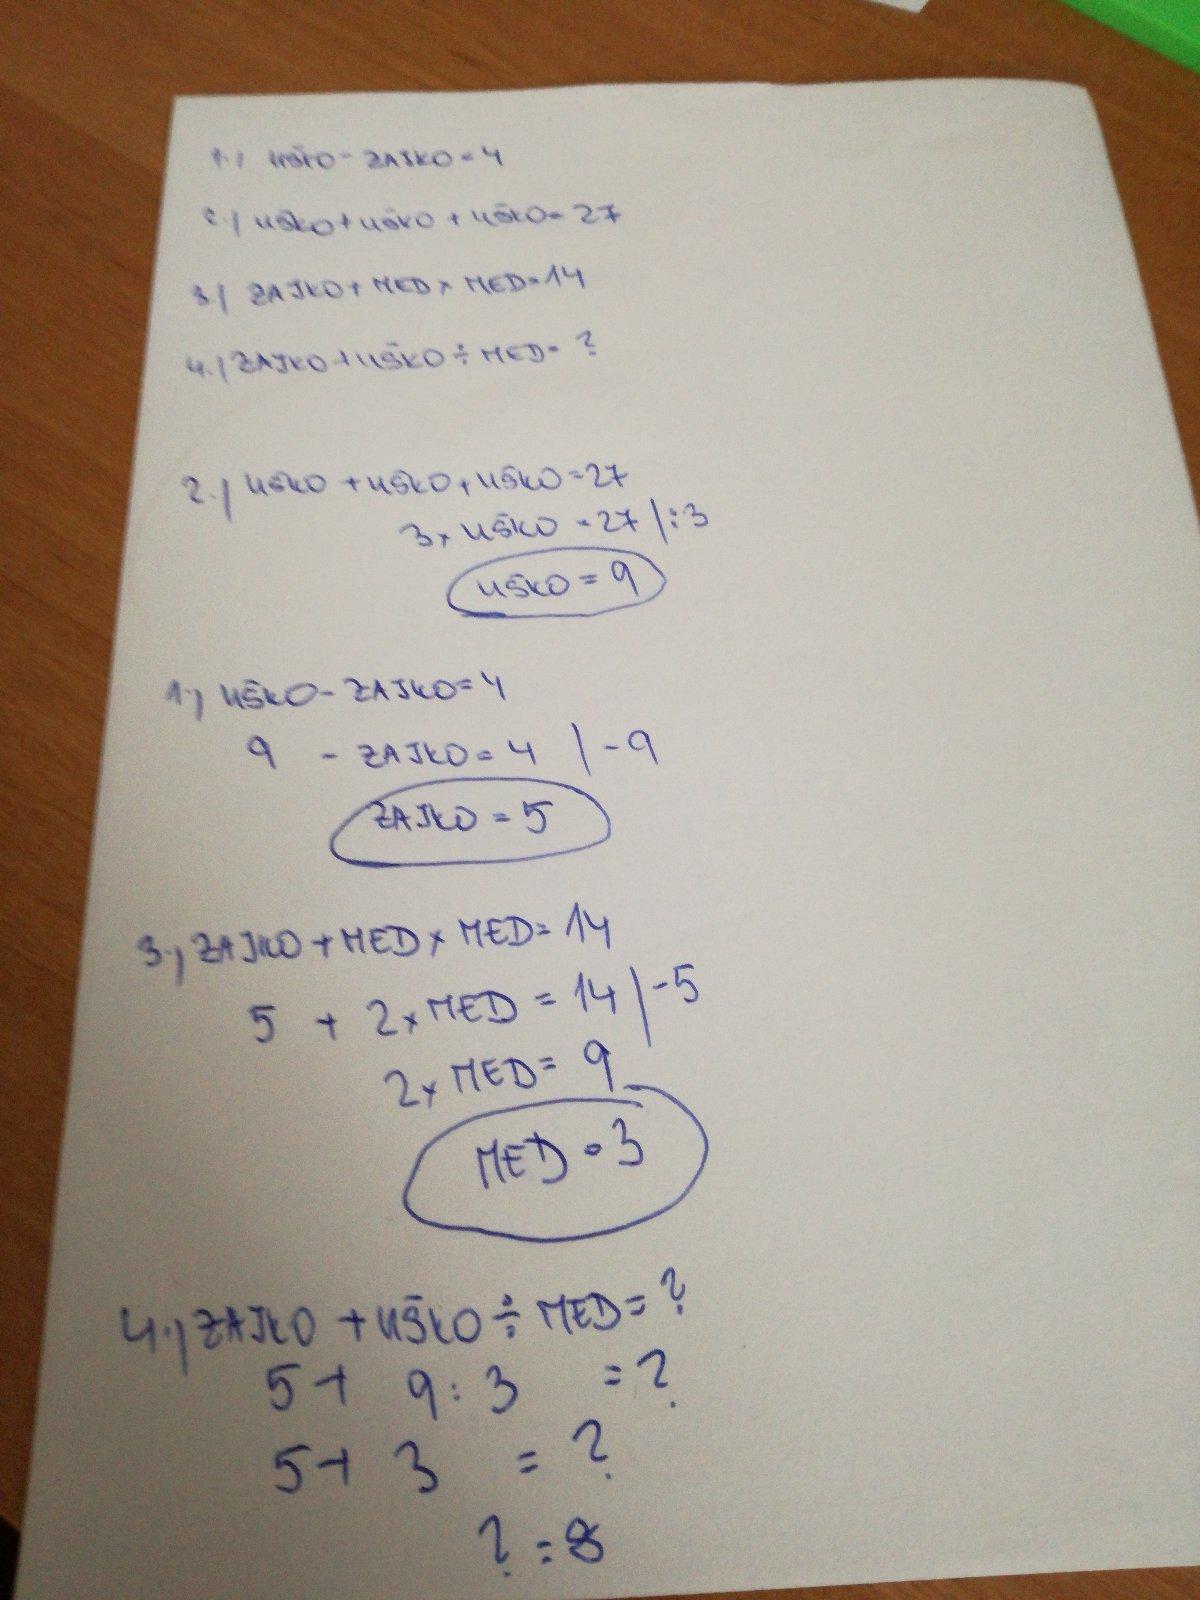 1.) UŠKO - ZAJKO = 4
2.) UŠKO + UŠKO + UŠKO = 27
3.) ZAJKO + MED × MED = 14
4.) ZAJKO + UŠKO ÷ MED = ?
2.) UŠKO + UŠKO + UŠKO = 27
3 × UŠKO = 27 | :3
UŠKO = 9
1.) UŠKO - ZAJKO = 4
9 - ZAJKO = 4 | -9
ZAJKO = 5
3.) ZAJKO + MED × MED = 14
5 + 2 × MED = 14 | -5
2 × MED = 9
MED = 3
4.) ZAJKO + UŠKO ÷ MED = ?
5 + 9 : 3 = ?
5 + 3 = ?
? = 8